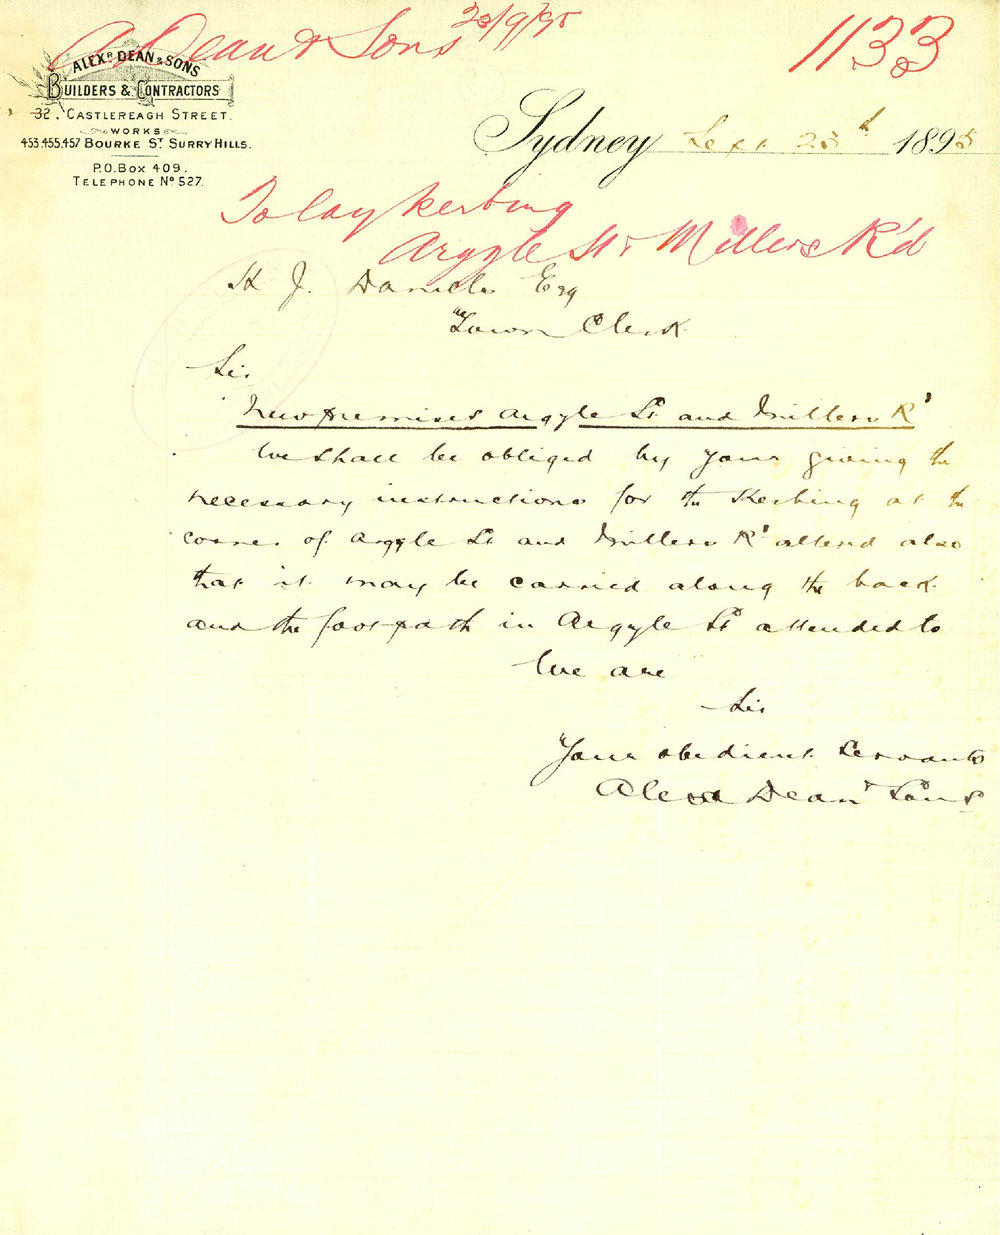 A Dean & Sons 23/9/95
1133
ALEXR DEAN & SONS
BUILDERS & CONTRACTORS
32, CASTLEREAGH STREET.
WORKS
453,455,457 BOURKE ST SURRY HILLS.
P.O. BOX 409.
TELEPHONE No 527.
Sydney Sept 23th 1895
To lay kerbing
Argyle St & Millers R'd
H J. Daniels Esq
Town Clerk
Sir
New premises Argyle St and Millers Rd
We shall be obliged by your giving the
necessary instructions for the Kerbing at the
corner of Argyle St and Millers Rd attend also
that it may be carried along the back
and the footpath in Argyle St attended to
We are
Sir
Your obedient Servants
Alexr Dean & Sons